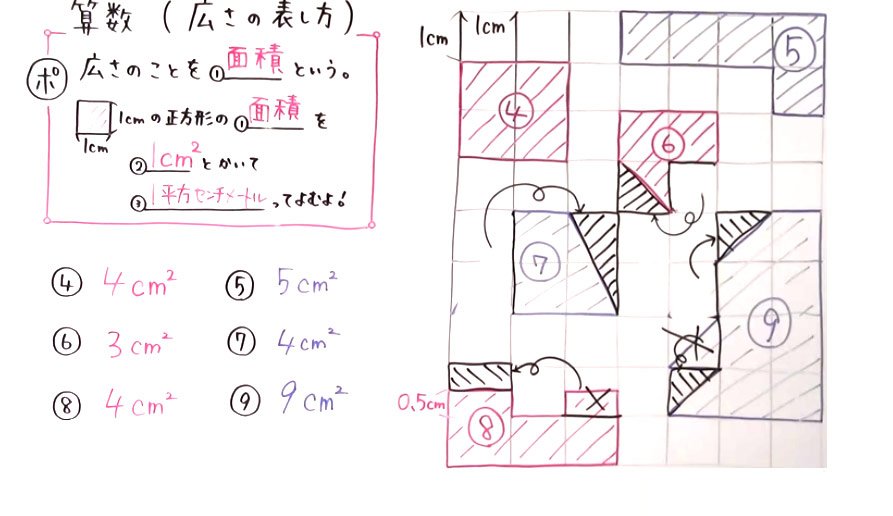 算数 (広さの表し方)
ポ 広さのことを①面積という。
1cm
1cmの正方形の①面積を
②1cm²とかいて
③1平方センチメートルってよむよ!
④ 4cm² ⑤ 5cm²
⑥ 3cm² ⑦ 4cm²
⑧ 4cm² ⑨ 9cm²
1cm 1cm
⑤
④
⑥
⑦
⑨
0.5cm
⑧